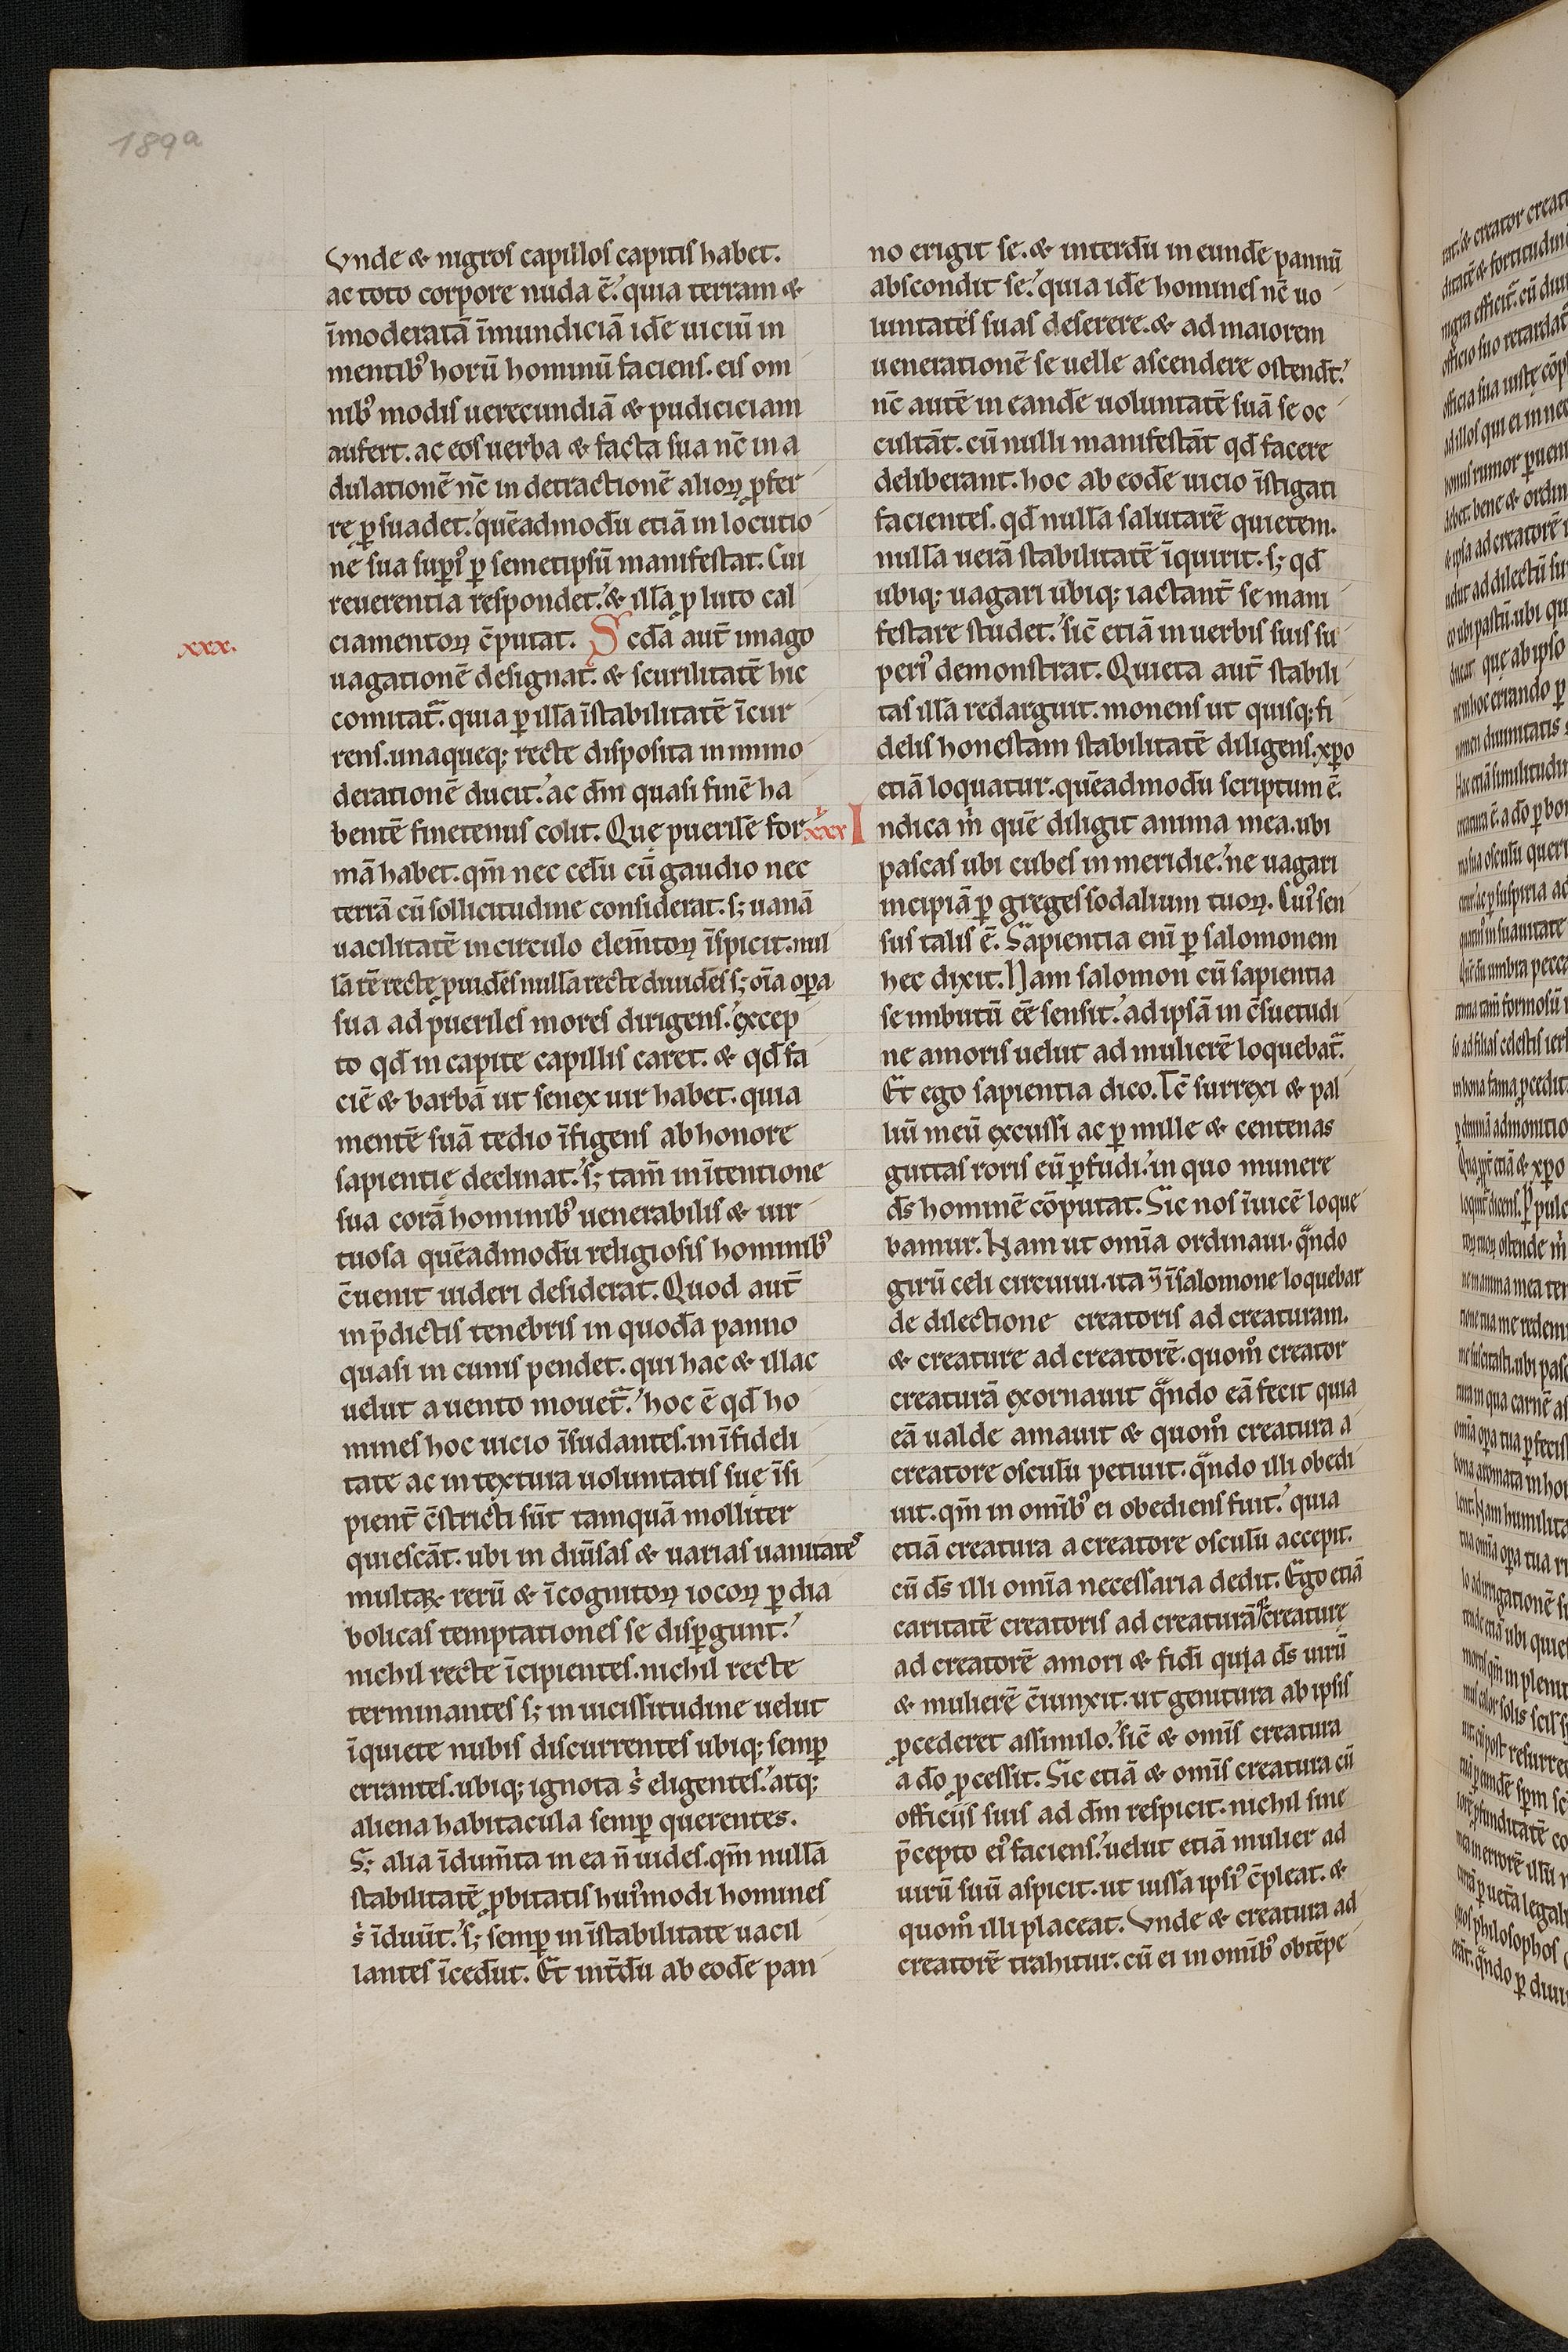 189a
Vnde & nigros capillos capitis habet.
ac toto corpore nuda ē. quia terram &
īmoderatā īmundiciā idē uiciū in
mentib⁹ horū hominū faciens. eis om
nib⁹ modis uerecundiā & pudiciciam
aufert. ac eos uerba & facta sua nc̄ in a
dulationē nc̄ in detractionē alioꝝ ꝓfer
re ꝑsuadet. quēadmodū etiā in locutio
ne sua supi⁹ ꝑ semetipsū manifestat. Cui
reuerentia respondet. & illā ꝓ luto cal
ciamentoꝝ c̄putat. Scdā aut̄ imago
xxx.
uagationē designat. & scurilitatē hic
comitat̄. quia ꝑ illā īstabilitatē īcur
rens. unaqueq; recte disposita in inmo
derationē ducit. ac dm̄ quasi finē ha
bentē finetenus colit. Que puerilē for
mā habet. qm̄ nec celū cū gaudio nec
terrā cū sollicitudine considerat. s; uanā
uacilitatē in circulo elem̄toꝝ īspicit. nul
lā rē recte ꝓuidēs nullā recte diuidēs s; oīa oꝑa
sua ad pueriles mores dirigens. excep
to qd̄ in capite capillis caret. & qd̄ fa
ciē & barbā ut senex uir habet. quia
mentē suā tedio īfigens ab honore
sapientie declinat. s; tam̄ in ītentione
sua corā hominib⁹ uenerabilis & uir
tuosa quēadmodū religiosis hominib⁹
c̄uenit uideri desiderat. Quod aut̄
in p̄dictis tenebris in quodā panno
quasi in cunis pendet. qui hac & illac
uelut a uento mouet̄. hoc ē qd̄ ho
mines hoc uicio īsudantes. in īfideli
tate ac in textura uoluntatis sue īsi
pient̄ c̄stricti sūt tamquā molliter
quiescāt. ubi in diūsas & uarias uanitates
multaꝝ rerū & īcognitoꝝ iocoꝝ ꝑ dia
bolicas temptationes se disꝑgunt.
nichil recte īcipientes. nichil recte
terminantes s; in uicissitudine uelut
īquiete nubis discurrentes ubiq; semꝑ
errantes. ubiq; ignota s̓ eligentes. atq;
aliena habitacula semꝑ querentes.
S; alia īdum̄ta in ea n̄ uides. qm̄ nullā
stabilitatē ꝓbitatis hui⁹modi homines
s̓ īduūt. s; semꝑ in īstabilitate uacil
lantes īcedūt. Et int̄dū ab eodē pan
no erigit se. & interdū in eundē pannū
abscondit se. quia idē homines nc̄ uo
luntates suas deserere. & ad maiorem
uenerationē se uelle ascendere ostendt̄.
nc̄ autē in eandē uoluntatē suā se oc
cultāt. cū nulli manifestāt qd̄ facere
deliberant. hoc ab eodē uicio īstigati
facientes. qd̄ nullā salutarē quietem.
nullā uerā stabilitatē īquirit. s; qd̄
ubiq; uagari ubiq; iactant̄ se mani
festare studet. sic̄ etiā in uerbis suis su
peri⁹ demonstrat. Quieta aut̄ stabili
tas illā redarguit. monens ut quisq; fi
delis honestam stabilitatē diligens. xp̄o
etiā loquatur. quēadmodū scriptum ē.
xxxi. Indica m̓ quē diligit anima mea. ubi
pascas ubi cubes in meridie. ne uagari
incipiā ꝑ greges sodalium tuoꝝ. Cui⁹ sen
sus talis ē. Sapientia enī ꝑ salomonem
hec dixit. Nam salomon cū sapientia
se imbutū eē sensit. ad ipsā in c̄suetudi
ne amoris uelut ad mulierē loquebat̄.
Et ego sapientia dico. Tc̄ surrexi & pal
liū meū excussi ac ꝑ mille & centenas
guttas roris eū ꝑfudi. in quo munere
ds̄ hominē cōputat. Sic nos īuicē loque
bamur. Nam ut omīa ordinaui. qn̄do
girū celi circuiui. ita & ī salomone loquebar
de dilectione creatoris ad creaturam.
& creature ad creatorē. quom̊ creator
creaturā exornauit qn̄do eā fecit quia
eā ualde amauit & quom̊ creatura a
creatore osculū petiuit. qn̄do illi obedi
uit. qm̄ in omīb⁹ ei obediens fuit. quia
etiā creatura a creatore osculū accepit.
cū ds̄ illi omīa necessaria dedit. Ego etiā
caritatē creatoris ad creaturā & creature
ad creatorē amori & fidi quia ds̄ uirū
& mulierē c̄iunxit. ut genitura ab ipsis
ꝓcederet assimilo. sic̄ & omīs creatura
a do̅ ꝓcessit. Sic etiā & omīs creatura cū
officiis suis ad dm̄ respicit. nichil sine
p̄cepto ei⁹ faciens. uelut etiā mulier ad
uirū suū aspicit. ut iussa ipsi⁹ c̄pleat. &
quom̊ illi placeat. Vnde & creatura ad
creatorē trahitur. cū ei in omīb⁹ obtēpe